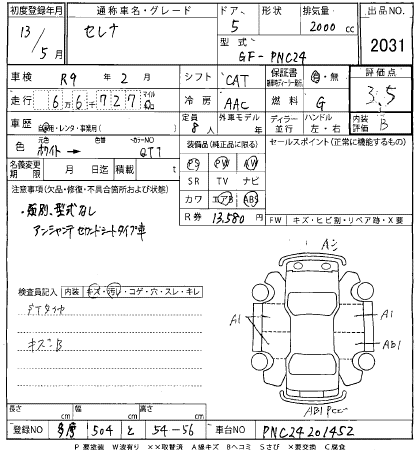 初度登録年月 通称車名・グレード ドア、 形状 排気量 出品NO
13/5月 セレナ 5 2000 cc 2031
型式 GF-PNC24
車検 R9年2月 シフト CAT 保証書 有・無 評価点 3.5
走行 66727 マイル km 冷房 AAC 燃料 G
車歴 自家用・レンタ・事業用( ) 定員 8人 外車モデル 年 ディーラー 並行 ハンドル 左・右 内装評価 B
色 元色 ホワイト → 色替 カラーNO QT1 装備品(純正品に限る) セールスポイント(正常に機能するもの)
名義変更期限 月 日迄 積載 t PS PW
SR TV ナビ
注意事項(欠品・修復・不具合箇所および状態) カワ エアB ABS
・類別、型式なし R券 13,580
アンシャンテ セカンドシートタイプ車 FW キズ・ヒビ割・リペア跡・X要
検査員記入 内装 キズ・汚レ・コゲ・穴・スレ・キレ
A1 A1
キズコB AB1
長さ cm 幅 cm 高さ cm
登録NO 多摩 504 と 54-56 車台NO PNC24201452
P 要塗装 W波有り ××取替済 A線キズ Bヘコミ Sさび ×要交換 C腐食